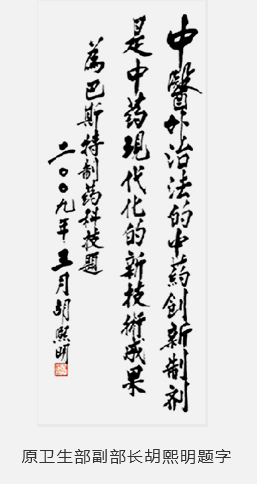 中醫外治法的中药創新制剂
是中药現代化的新技術成果
為巴斯特制药科技題
二〇〇九年五月胡熙明
原卫生部副部长胡熙明题字